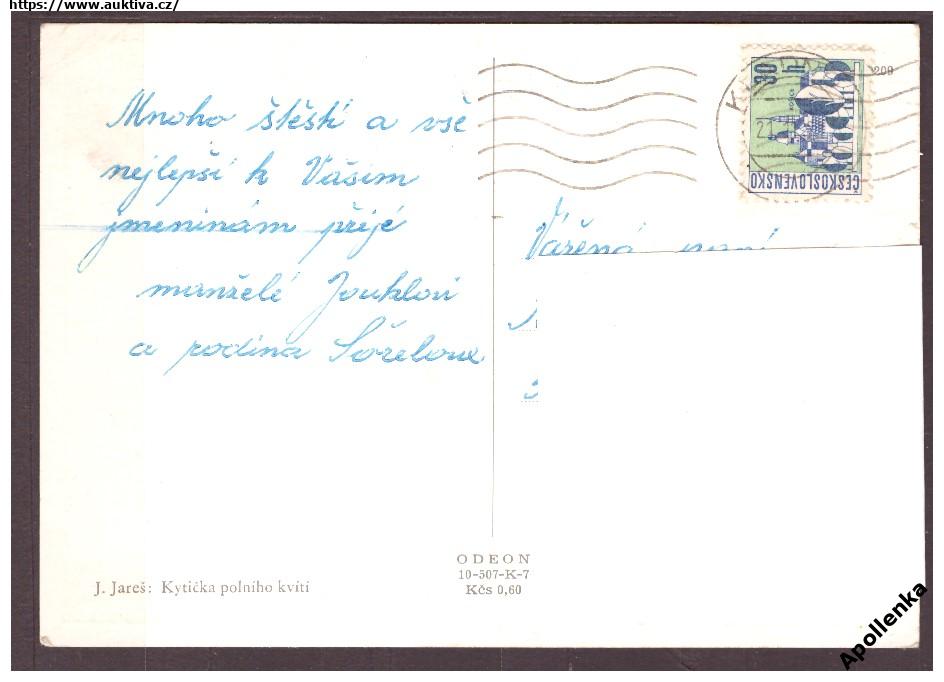 https://www.auktiva.cz/
Mnoho štěstí a vše
nejlepší k Vašim
jmeninám přeje
manželé Jouklovi
a rodina
Vážená paní
30 h
KOŠICE
ČESKOSLOVENSKO
209
J. Jareš: Kytička polního kvítí
ODEON
10-507-K-7
Kčs 0,60
Apollenka